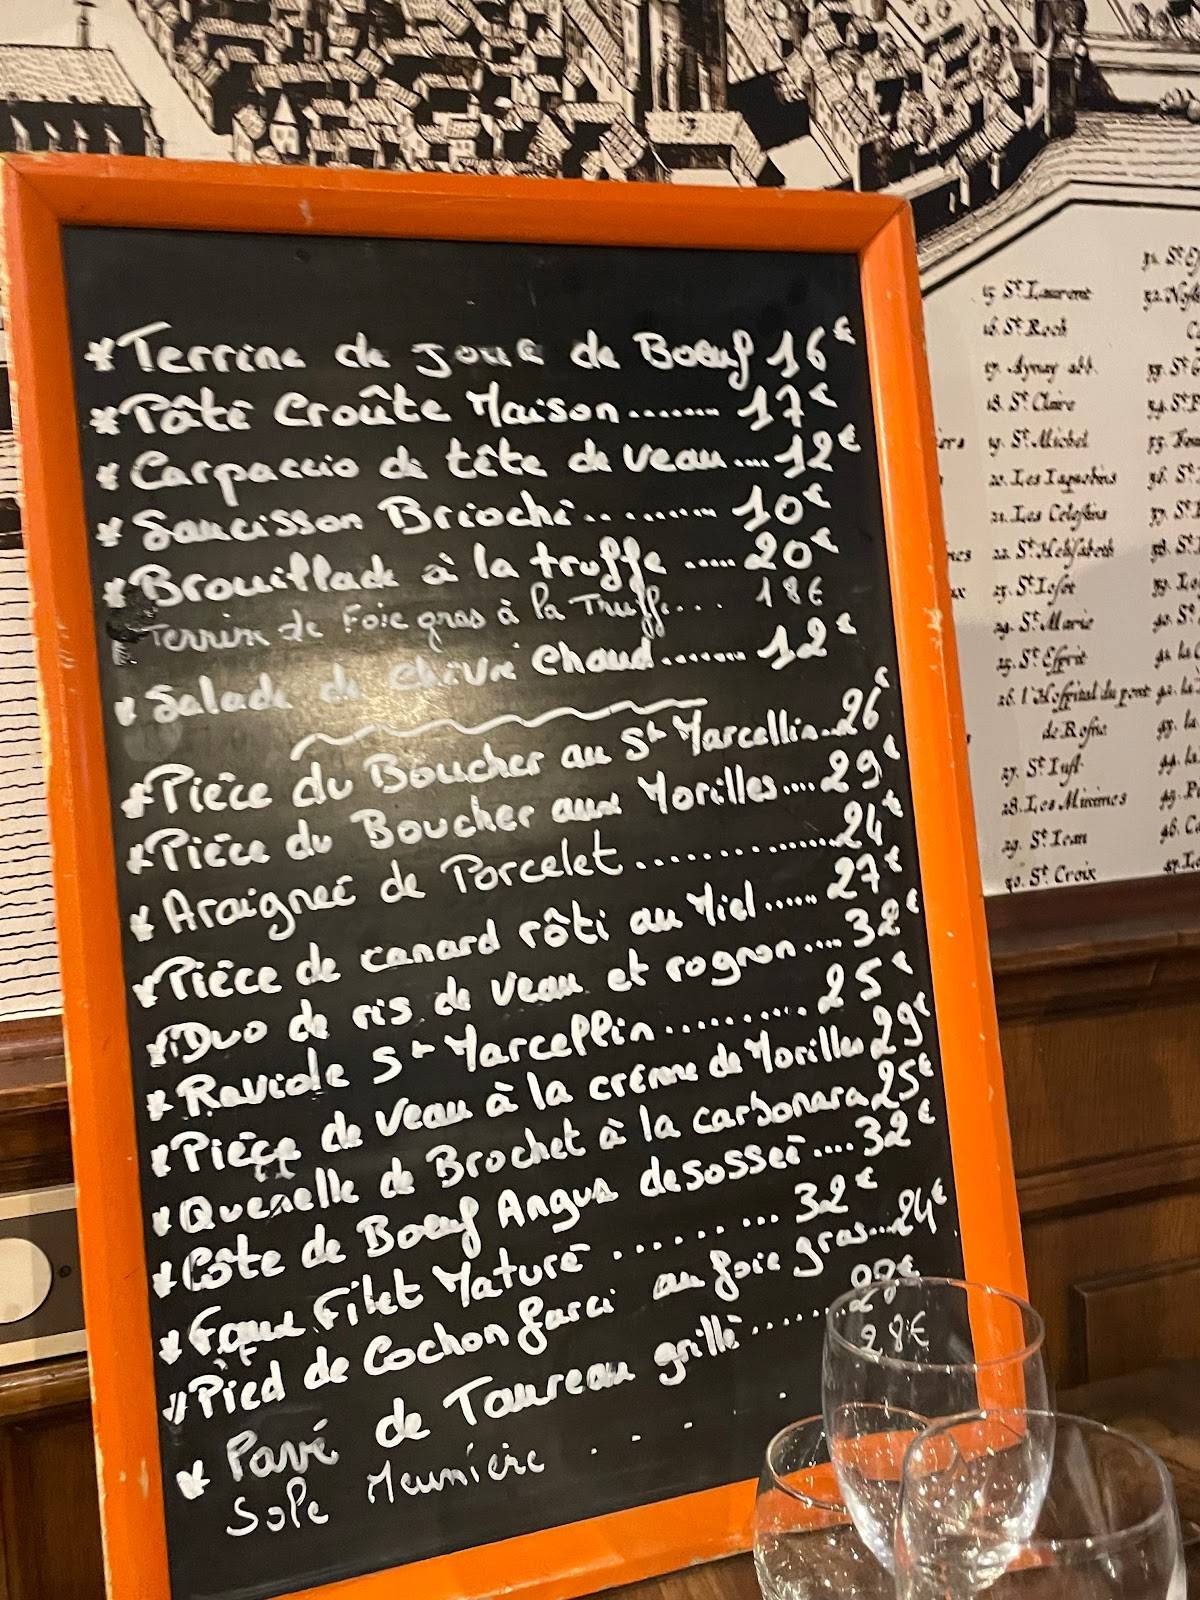 * Terrine de Joue de Boeuf 16€
* Pâté Croûte Maison ....... 17€
* Carpaccio de tête de veau .... 12€
* Saucisson Brioché ......... 10€
* Brouillade à la truffe ..... 20€
Terrine de Foie gras à la Truffe... 18€
* Salade de chèvre chaud ....... 12€
* Pièce du Boucher au St Marcellin .. 26€
* Pièce du Boucher aux Morilles .... 29€
* Araignée de Porcelet .............. 24€
* Pièce de canard rôti au Miel ..... 27€
* Duo de ris de veau et rognon .... 32€
* Raviole St Marcellin .......... 25€
* Pièce de Veau à la crème de Morilles 29€
* Quenelle de Brochet à la carbonara 25€
* Côte de Boeuf Angus desossée .... 32€
* Faux Filet Maturé ......... 32€
* Pied de Cochon farci au foie gras ... 24€
* Pavé de Taureau grillé .......
Sole Meunière . . . . 28€
15. St. Laurent
16. St. Roch
17. Aynay abb.
18. St. Claire
19. St. Michel
20. Les Iaquobins
21. Les Celestins
22. St. Helisabeth
23. St. Iosef
24. St. Marie
25. St. Esprit
26. l'Hospital du pont
de Rosne
27. St. Iust
28. Les Minimes
29. St. Iean
30. St. Croix